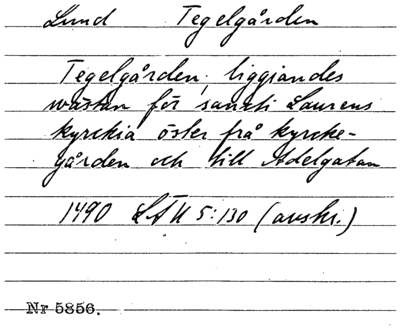 Lund Tegelgården
Tegelgården, liggiandes
wästan för sancti Laurens
kyrckia öster frå kyrcke-
gården och till Adelgatan
1490 LÄU 5:130 (avskr.)
Nr 5856.